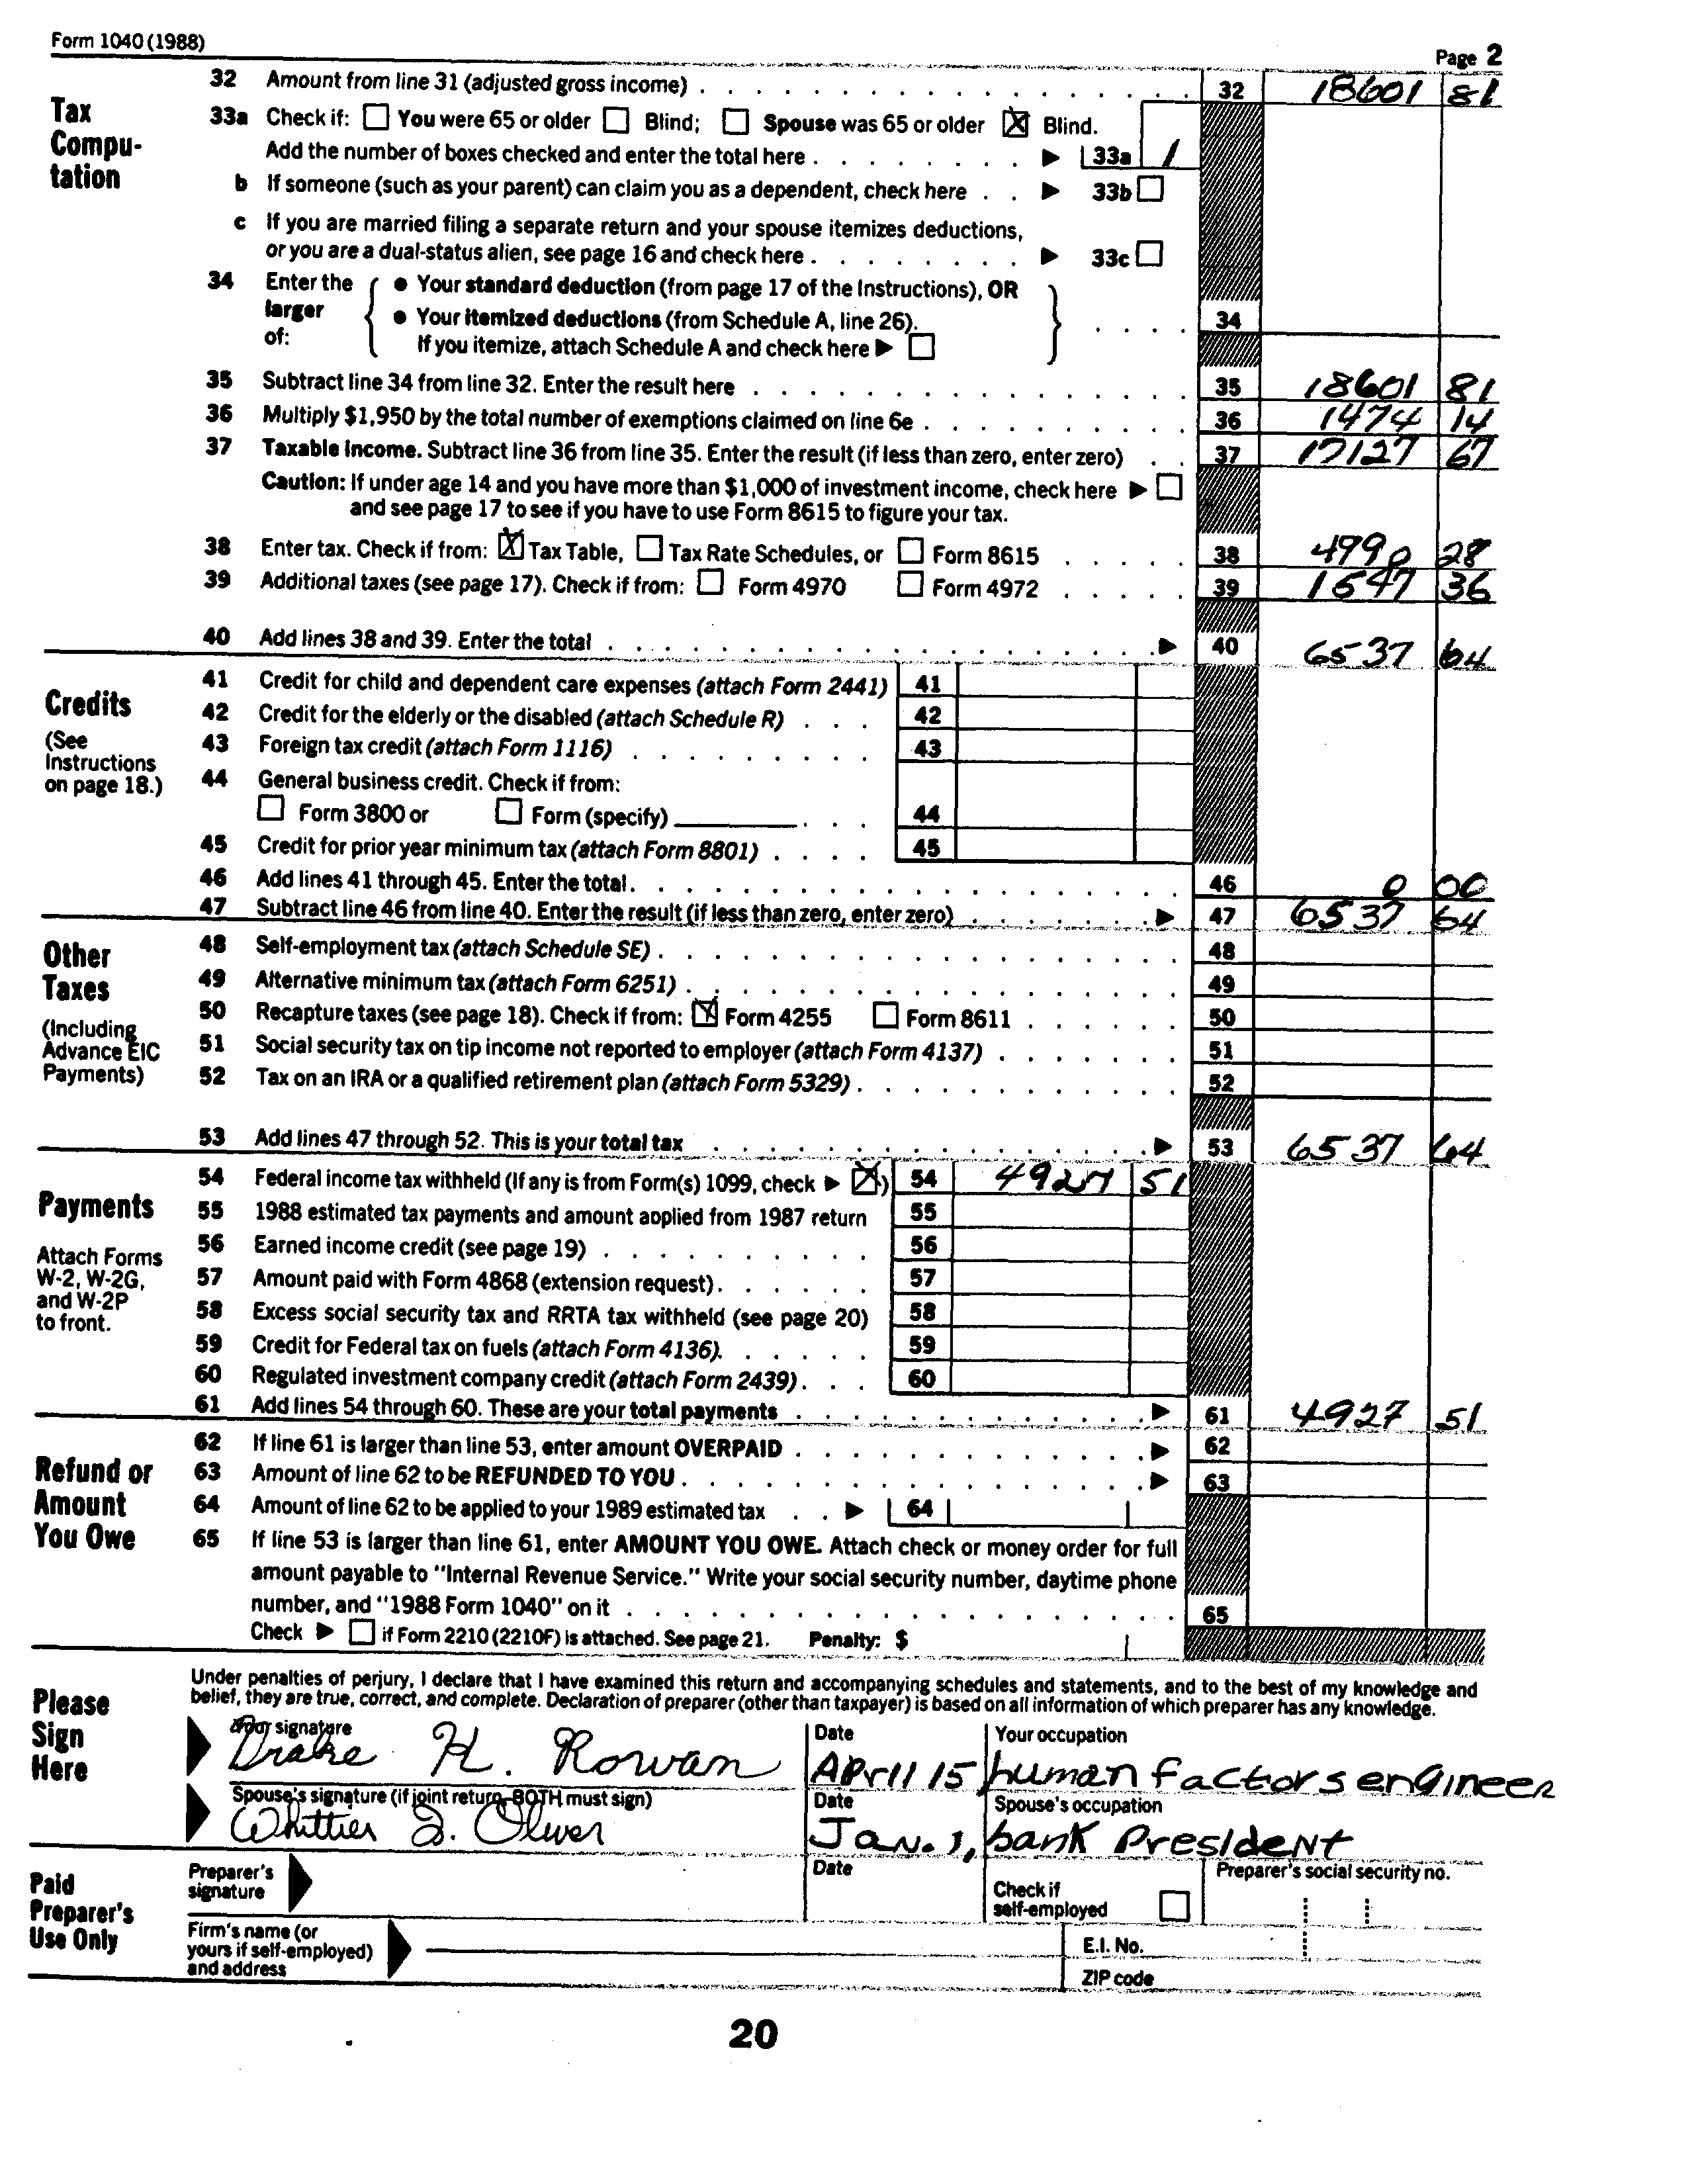 Form 1040 (1988)
Page 2
Tax Compu-tation
32 Amount from line 31 (adjusted gross income) 32 18601 81
33a Check if: You were 65 or older Blind; Spouse was 65 or older X Blind.
Add the number of boxes checked and enter the total here 33a 1
b If someone (such as your parent) can claim you as a dependent, check here 33b
c If you are married filing a separate return and your spouse itemizes deductions,
or you are a dual-status alien, see page 16 and check here 33c
34 Enter the larger of:
● Your standard deduction (from page 17 of the Instructions), OR
● Your itemized deductions (from Schedule A, line 26).
If you itemize, attach Schedule A and check here 34
35 Subtract line 34 from line 32. Enter the result here 35 18601 81
36 Multiply $1,950 by the total number of exemptions claimed on line 6e 36 1474 14
37 Taxable income. Subtract line 36 from line 35. Enter the result (if less than zero, enter zero) 37 17127 67
Caution: If under age 14 and you have more than $1,000 of investment income, check here
and see page 17 to see if you have to use Form 8615 to figure your tax.
38 Enter tax. Check if from: X Tax Table, Tax Rate Schedules, or Form 8615 38 4990 28
39 Additional taxes (see page 17). Check if from: Form 4970 Form 4972 39 1547 36
40 Add lines 38 and 39. Enter the total 40 6537 64
Credits
(See Instructions on page 18.)
41 Credit for child and dependent care expenses (attach Form 2441) 41
42 Credit for the elderly or the disabled (attach Schedule R) 42
43 Foreign tax credit (attach Form 1116) 43
44 General business credit. Check if from:
Form 3800 or Form (specify) 44
45 Credit for prior year minimum tax (attach Form 8801) 45
46 Add lines 41 through 45. Enter the total 46 0 00
47 Subtract line 46 from line 40. Enter the result (if less than zero, enter zero) 47 6537 64
Other Taxes
(Including Advance EIC Payments)
48 Self-employment tax (attach Schedule SE) 48
49 Alternative minimum tax (attach Form 6251) 49
50 Recapture taxes (see page 18). Check if from: X Form 4255 Form 8611 50
51 Social security tax on tip income not reported to employer (attach Form 4137) 51
52 Tax on an IRA or a qualified retirement plan (attach Form 5329) 52
53 Add lines 47 through 52. This is your total tax 53 6537 64
Payments
Attach Forms W-2, W-2G, and W-2P to front.
54 Federal income tax withheld (If any is from Form(s) 1099, check X ) 54 4927 51
55 1988 estimated tax payments and amount applied from 1987 return 55
56 Earned income credit (see page 19) 56
57 Amount paid with Form 4868 (extension request) 57
58 Excess social security tax and RRTA tax withheld (see page 20) 58
59 Credit for Federal tax on fuels (attach Form 4136) 59
60 Regulated investment company credit (attach Form 2439) 60
61 Add lines 54 through 60. These are your total payments 61 4927 51
Refund or Amount You Owe
62 If line 61 is larger than line 53, enter amount OVERPAID 62
63 Amount of line 62 to be REFUNDED TO YOU 63
64 Amount of line 62 to be applied to your 1989 estimated tax 64
65 If line 53 is larger than line 61, enter AMOUNT YOU OWE. Attach check or money order for full
amount payable to "Internal Revenue Service." Write your social security number, daytime phone
number, and "1988 Form 1040" on it 65
Check if Form 2210 (2210F) is attached. See page 21. Penalty: $
Please Sign Here
Under penalties of perjury, I declare that I have examined this return and accompanying schedules and statements, and to the best of my knowledge and
belief, they are true, correct, and complete. Declaration of preparer (other than taxpayer) is based on all information of which preparer has any knowledge.
Your signature Date Your occupation
Drake H. Rowan April 15 human factors engineer
Spouse's signature (if joint return, BOTH must sign) Date Spouse's occupation
Whittier J. Oliver Jan. 1, bank President
Paid Preparer's Use Only
Preparer's signature Date Check if self-employed Preparer's social security no.
Firm's name (or yours if self-employed) and address E.I. No.
ZIP code
20